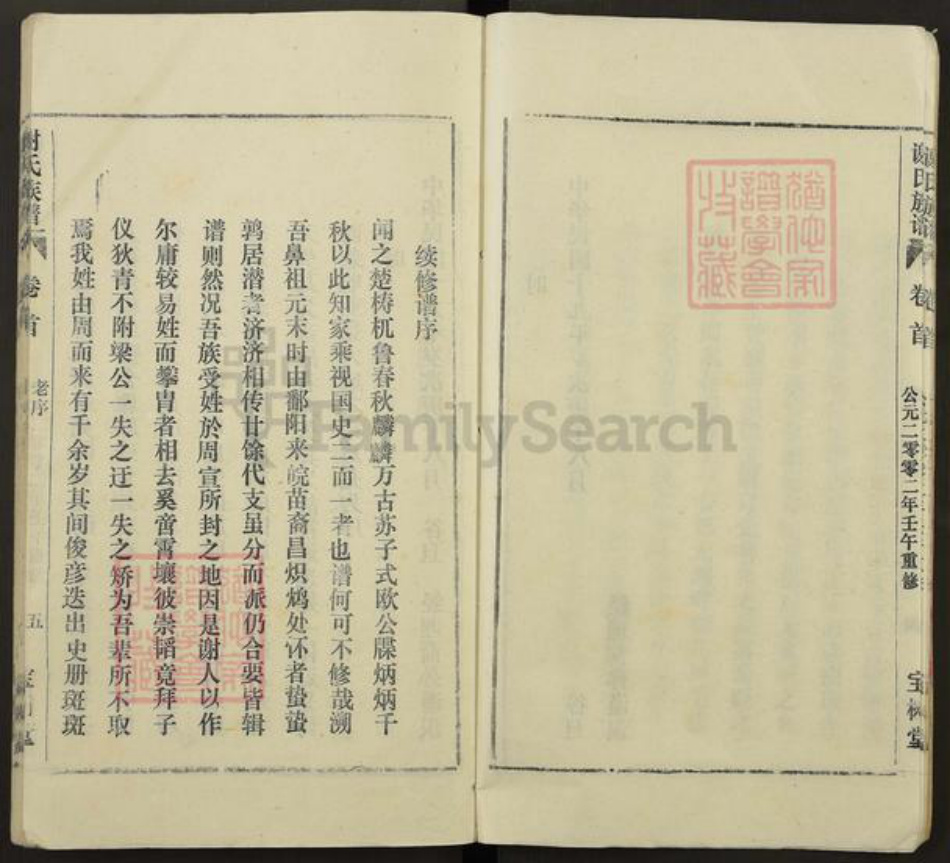 谢氏族谱
卷首
公元二零零二年壬午重修
宝树堂
续修谱序
闻之楚梼杌鲁春秋麟麟万古苏子式欧公牒炳炳千
秋以此知家乘视国史二而一者也谱何可不修哉溯
吾鼻祖元末时由鄱阳来皖苗裔昌炽鸩处怀者蛰蛰
鹑居潜者济济相传廿馀代支虽分而派仍合要皆辑
谱则然况吾族受姓於周宣所封之地因是谢人以作
尔庸较易姓而攀胄者相去奚啻霄壤彼崇韬竟拜子
仪狄青不附梁公一失之迂一失之矫为吾辈所不取
焉我姓由周而来有千余岁其间俊彦迭出史册斑斑
谢氏族谱
卷首
老序
五
FamilySearch
谱学会
收藏